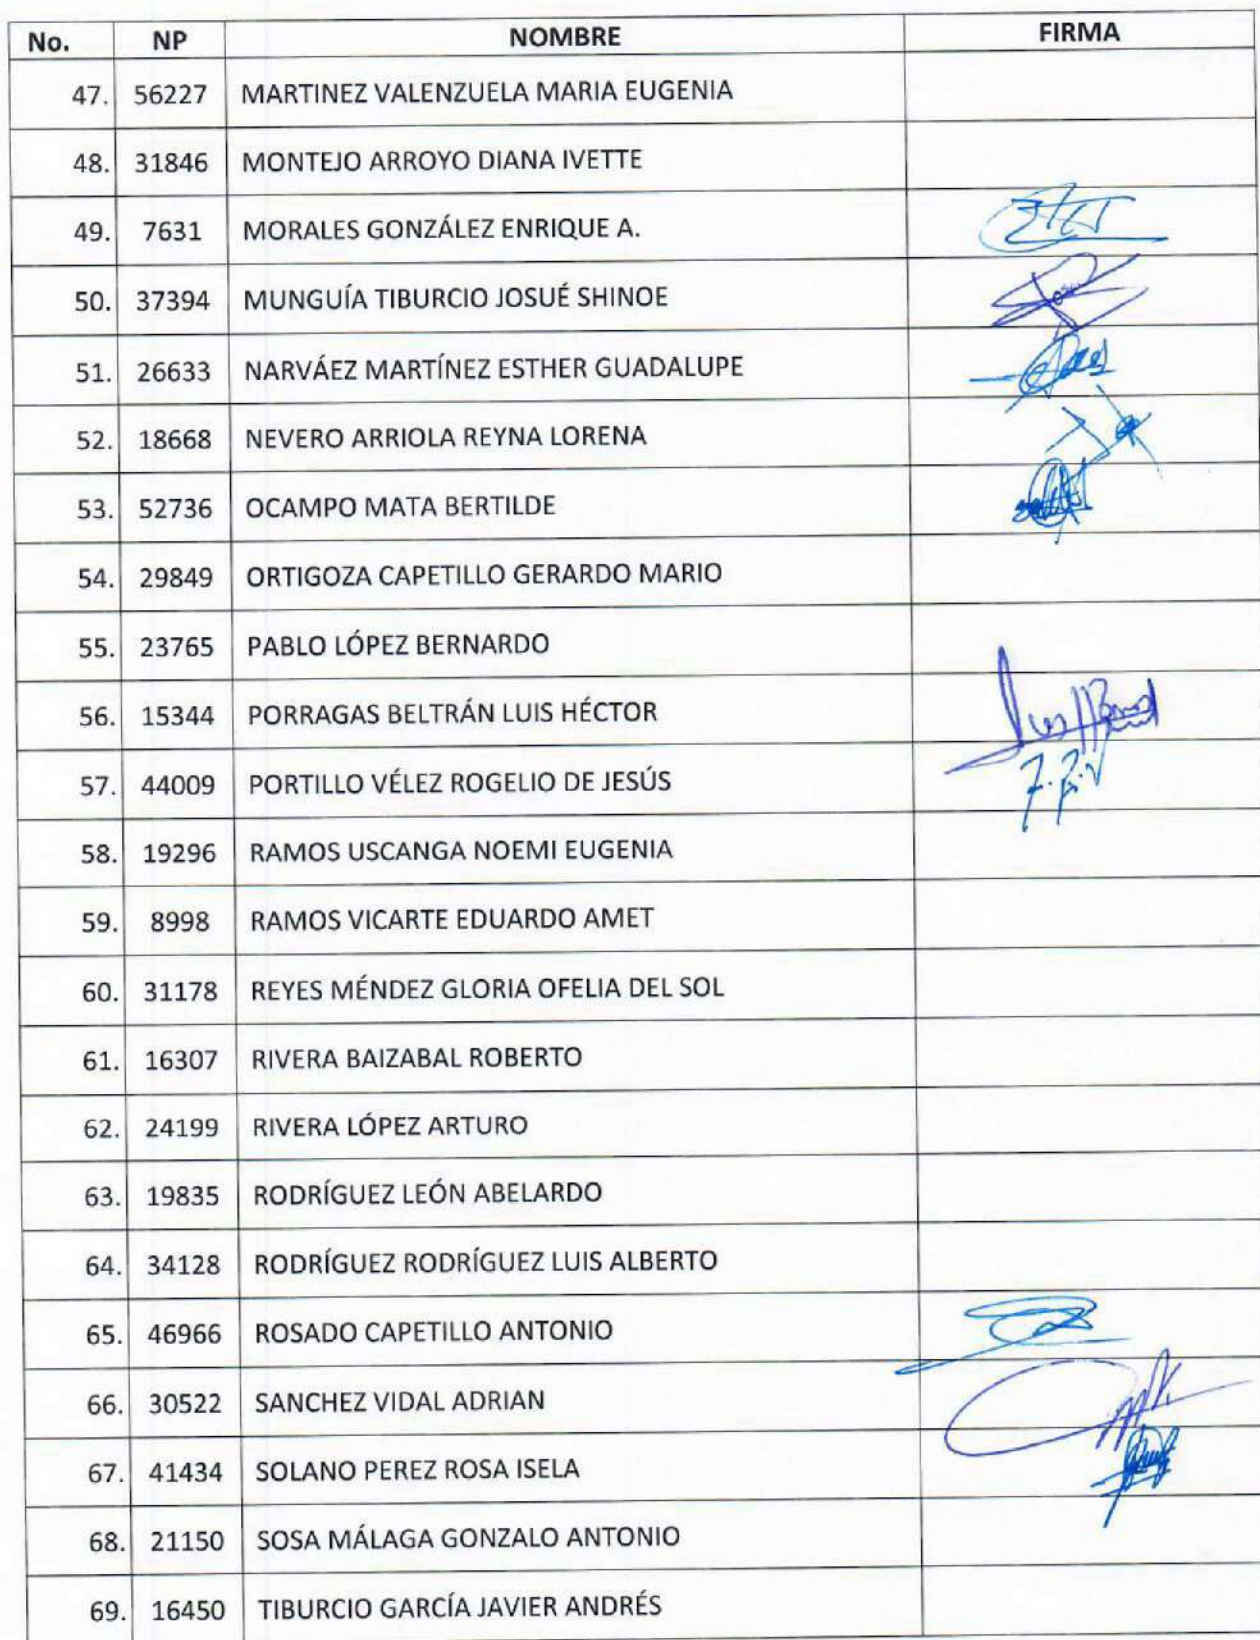 No. NP NOMBRE FIRMA
47. 56227 MARTINEZ VALENZUELA MARIA EUGENIA
48. 31846 MONTEJO ARROYO DIANA IVETTE
49. 7631 MORALES GONZÁLEZ ENRIQUE A.
50. 37394 MUNGUÍA TIBURCIO JOSUÉ SHINOE
51. 26633 NARVÁEZ MARTÍNEZ ESTHER GUADALUPE
52. 18668 NEVERO ARRIOLA REYNA LORENA
53. 52736 OCAMPO MATA BERTILDE
54. 29849 ORTIGOZA CAPETILLO GERARDO MARIO
55. 23765 PABLO LÓPEZ BERNARDO
56. 15344 PORRAGAS BELTRÁN LUIS HÉCTOR
57. 44009 PORTILLO VÉLEZ ROGELIO DE JESÚS
58. 19296 RAMOS USCANGA NOEMI EUGENIA
59. 8998 RAMOS VICARTE EDUARDO AMET
60. 31178 REYES MÉNDEZ GLORIA OFELIA DEL SOL
61. 16307 RIVERA BAIZABAL ROBERTO
62. 24199 RIVERA LÓPEZ ARTURO
63. 19835 RODRÍGUEZ LEÓN ABELARDO
64. 34128 RODRÍGUEZ RODRÍGUEZ LUIS ALBERTO
65. 46966 ROSADO CAPETILLO ANTONIO
66. 30522 SANCHEZ VIDAL ADRIAN
67. 41434 SOLANO PEREZ ROSA ISELA
68. 21150 SOSA MÁLAGA GONZALO ANTONIO
69. 16450 TIBURCIO GARCÍA JAVIER ANDRÉS